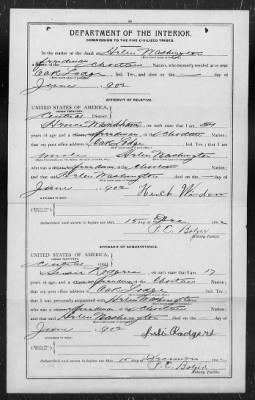 DEPARTMENT OF THE INTERIOR.
COMMISSION TO THE FIVE CIVILIZED TRIBES.
In the matter of the death of Arlen Washington
freedman Choctaw Nation, who
Oak Lodge, Ind. Ter., and died on the — day of
June, 1902
AFFIDAVIT OF RELATIVE.
UNITED STATES OF AMERICA,
INDIAN TERRITORY,
Central District.
on oath state that I am
years of age and a freedman of Choctaw Nation;
that my post office address is Oak Lodge, Ind. Ter.; that I am
Arlen Washington
who was a freedman of Choctaw Nation;
and that Arlen Washington died on the — day of
June, 1902
Subscribed and sworn to before me this 15 day of
T. C. Bolger
Notary Public.
AFFIDAVIT OF ACQUAINTANCE.
UNITED STATES OF AMERICA,
INDIAN TERRITORY,
Central District.
Susie Rodgers on oath state that I am 17
years of age, and a freedman of Choctaw Nation;
that my post office address is Oak Lodge, Ind. Ter.;
that I was personally acquainted with Arlen Washington
who was a freedman of Choctaw Nation;
and that Arlen Washington died on the — day of
June, 1902
Susie Rodgers
Subscribed and sworn to before me this 15 day of
T. C. Bolger
Notary Public.